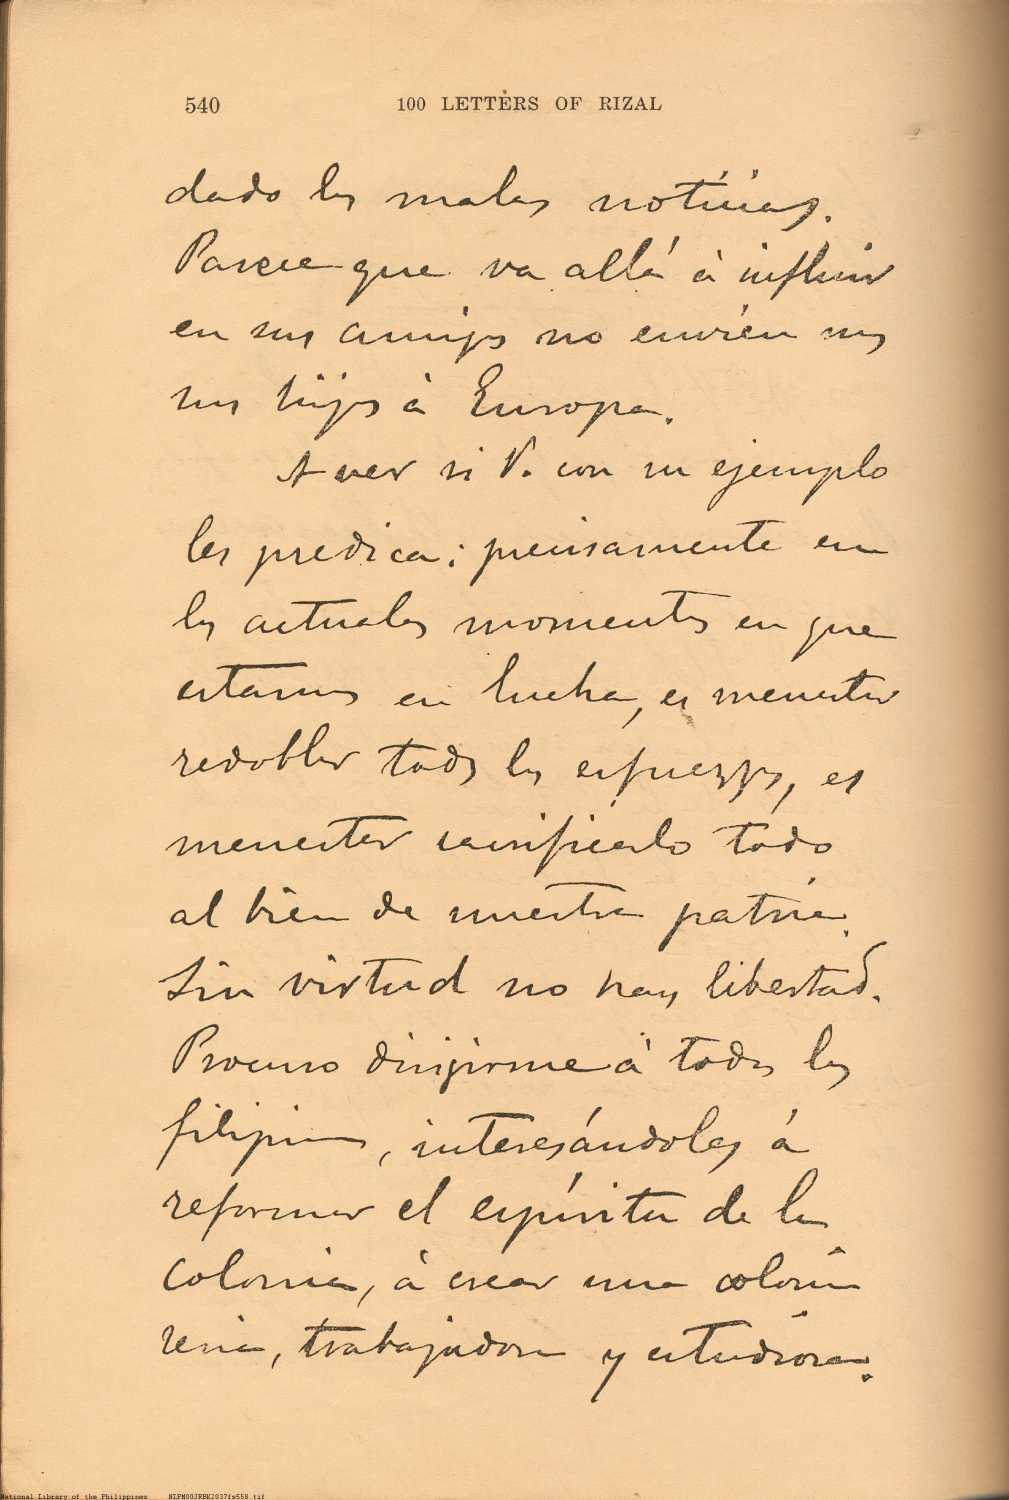 540 100 LETTERS OF RIZAL
dado las malas noticias.
Parece que va allá à influir
en sus amigos no envíen mas
sus hijos à Europa.
A ver si V. con su ejemplo
les predica; precisamente en
los actuales momentos en que
estamos en lucha, es menester
redoblar todos los esfuerzos, es
menester sacrificarlo todo
al bien de nuestra patria.
Sin virtud no hay libertad.
Procuro dirijirme à todos los
filipinos, interesándoles á
reformar el espíritu de la
colonia, à crear una colonia
seria, trabajadora y estudiosa.
National Library of the Philippines NLPN00JRBK2037fs558.tif